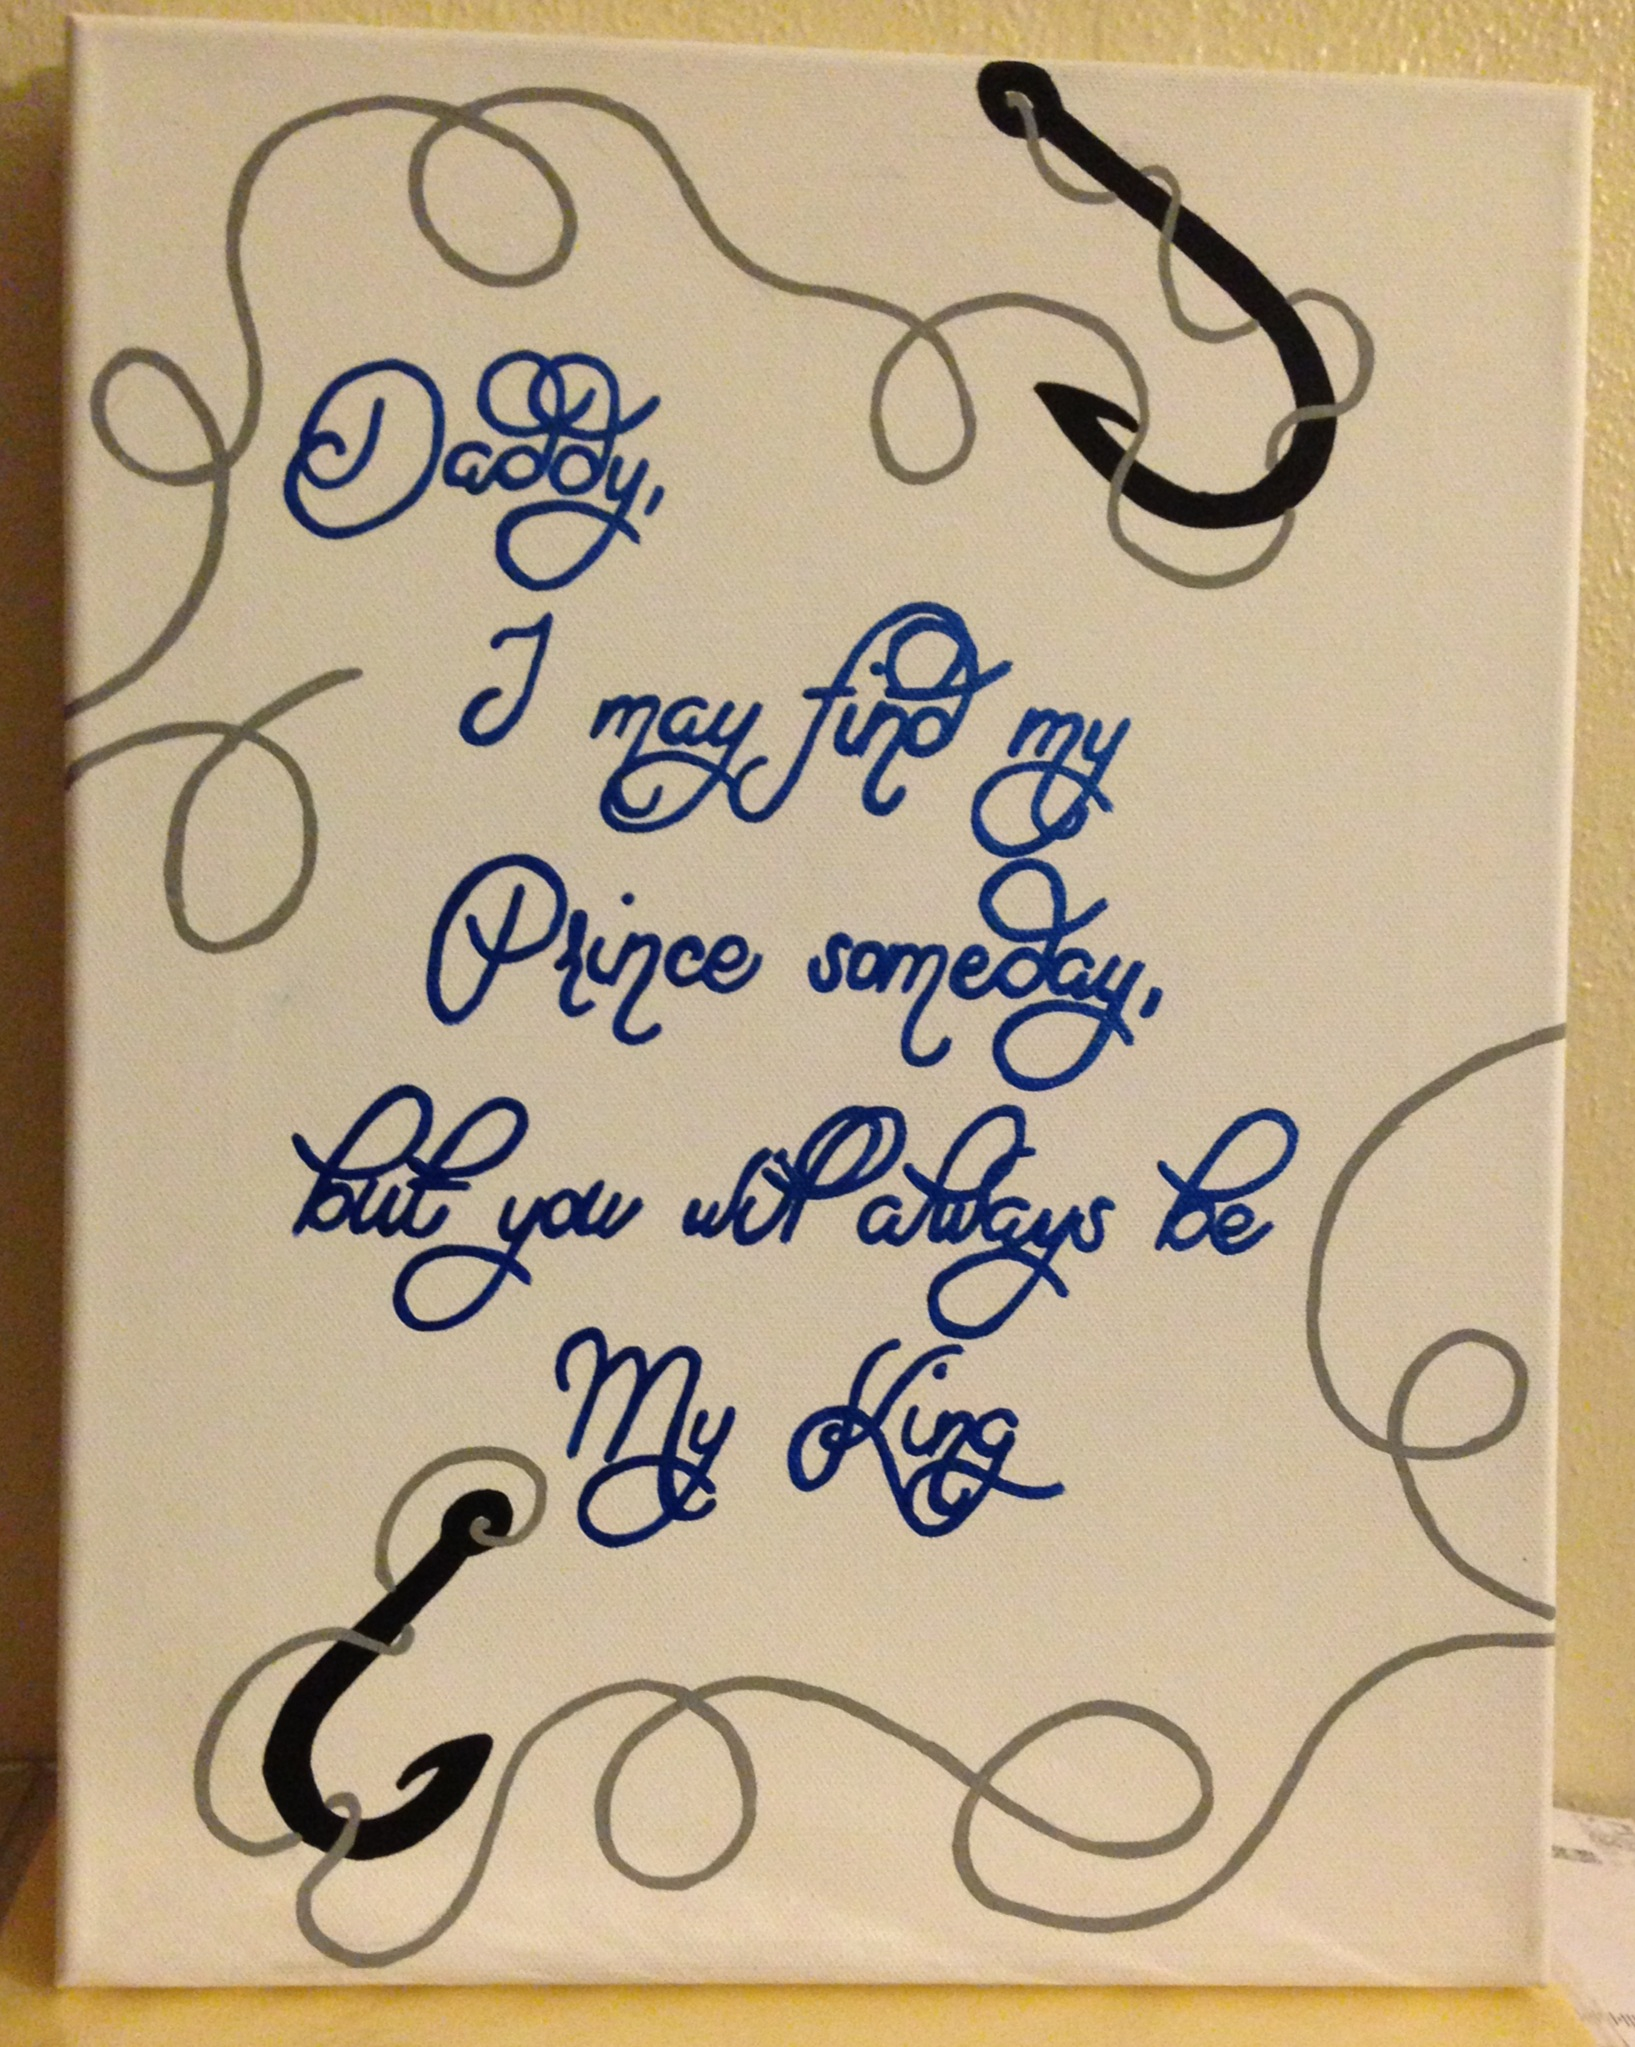 Daddy,
I may find my
Prince someday,
but you will always be
My King